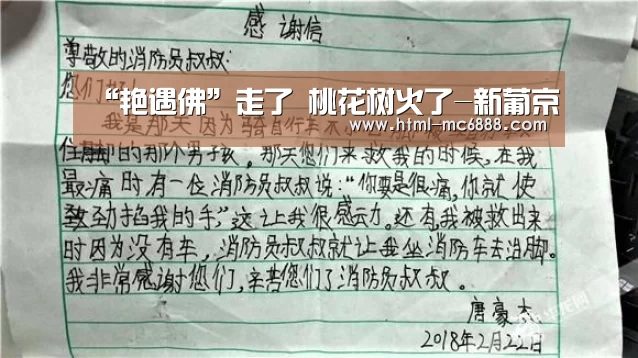 感谢信
尊敬的消防员叔叔:
您们
“艳遇佛”走了 桃花树火了-新葡京
www.html-mc6888.com
我是那天因为骑自行车不
住脚的那个男孩。那天您们来救我的时候,在我
最痛时有一位消防员叔叔说:“你要是很痛,你就使
致劲掐我的手,”这让我很感动。还有,我被救出来
时因为没有车,消防员叔叔就让我坐消防车去治脚。
我非常感谢您们,辛苦您们了消防员叔叔。
唐豪杰
2018年2月22日